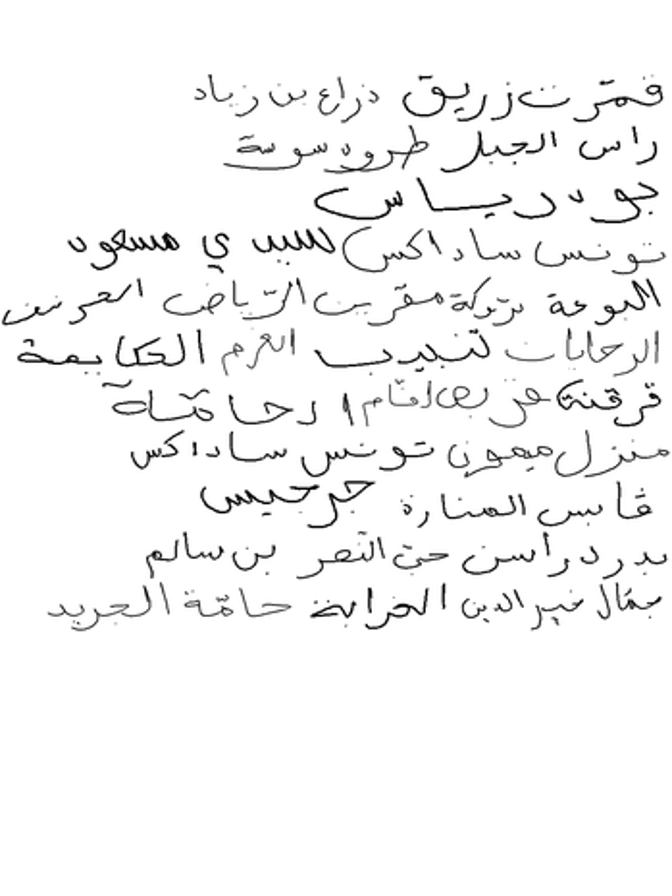 قمرت زريق ذراع بن زياد
راس الجبل طرود سوسة
بودرياس
تونس ساداكس سيدي مسعود
البوعة بريكة مقرين الرياض العرنين
الرحابات تنبيب القرم الحكايمة
قرقنة
منزل ميمون تونس ساداكس
قابس المنارة جرجيس
بدر دراسن حي النصر بن سالم
جمال خير الدين الخرابة حامة الجريد